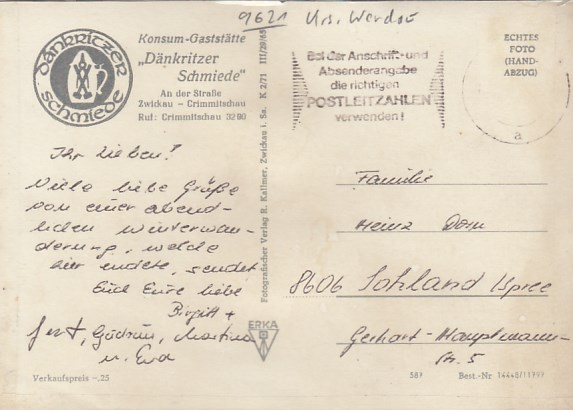 9621
Konsum-Gaststätte
„Dänkritzer
Schmiede"
An der Straße
Zwickau - Crimmitschau
Ruf: Crimmitschau 32 90
DÄNKRITZER
SCHMIEDE
Bei der Anschrift- und
Absenderangabe
die richtigen
POSTLEITZAHLEN
verwenden!
ECHTES
FOTO
(HAND-
ABZUG)
a
Ihr Lieben!
Viele liebe Grüße
von einer abend-
lichen Winterwan-
derung, welche
hier endete, sendet
Euch Eure liebe
Birgitt +
Gert, Gudrun, Martina
u. Eva
Fotografischer Verlag R. Kallmer, Zwickau i. Sa. K 2/71 III/29/65
Familie
Heinz Dorn
8606 Sohland /Spree
Gerhart-Hauptmann-
Str. 5
ERKA
Verkaufspreis -.25
Best.-Nr